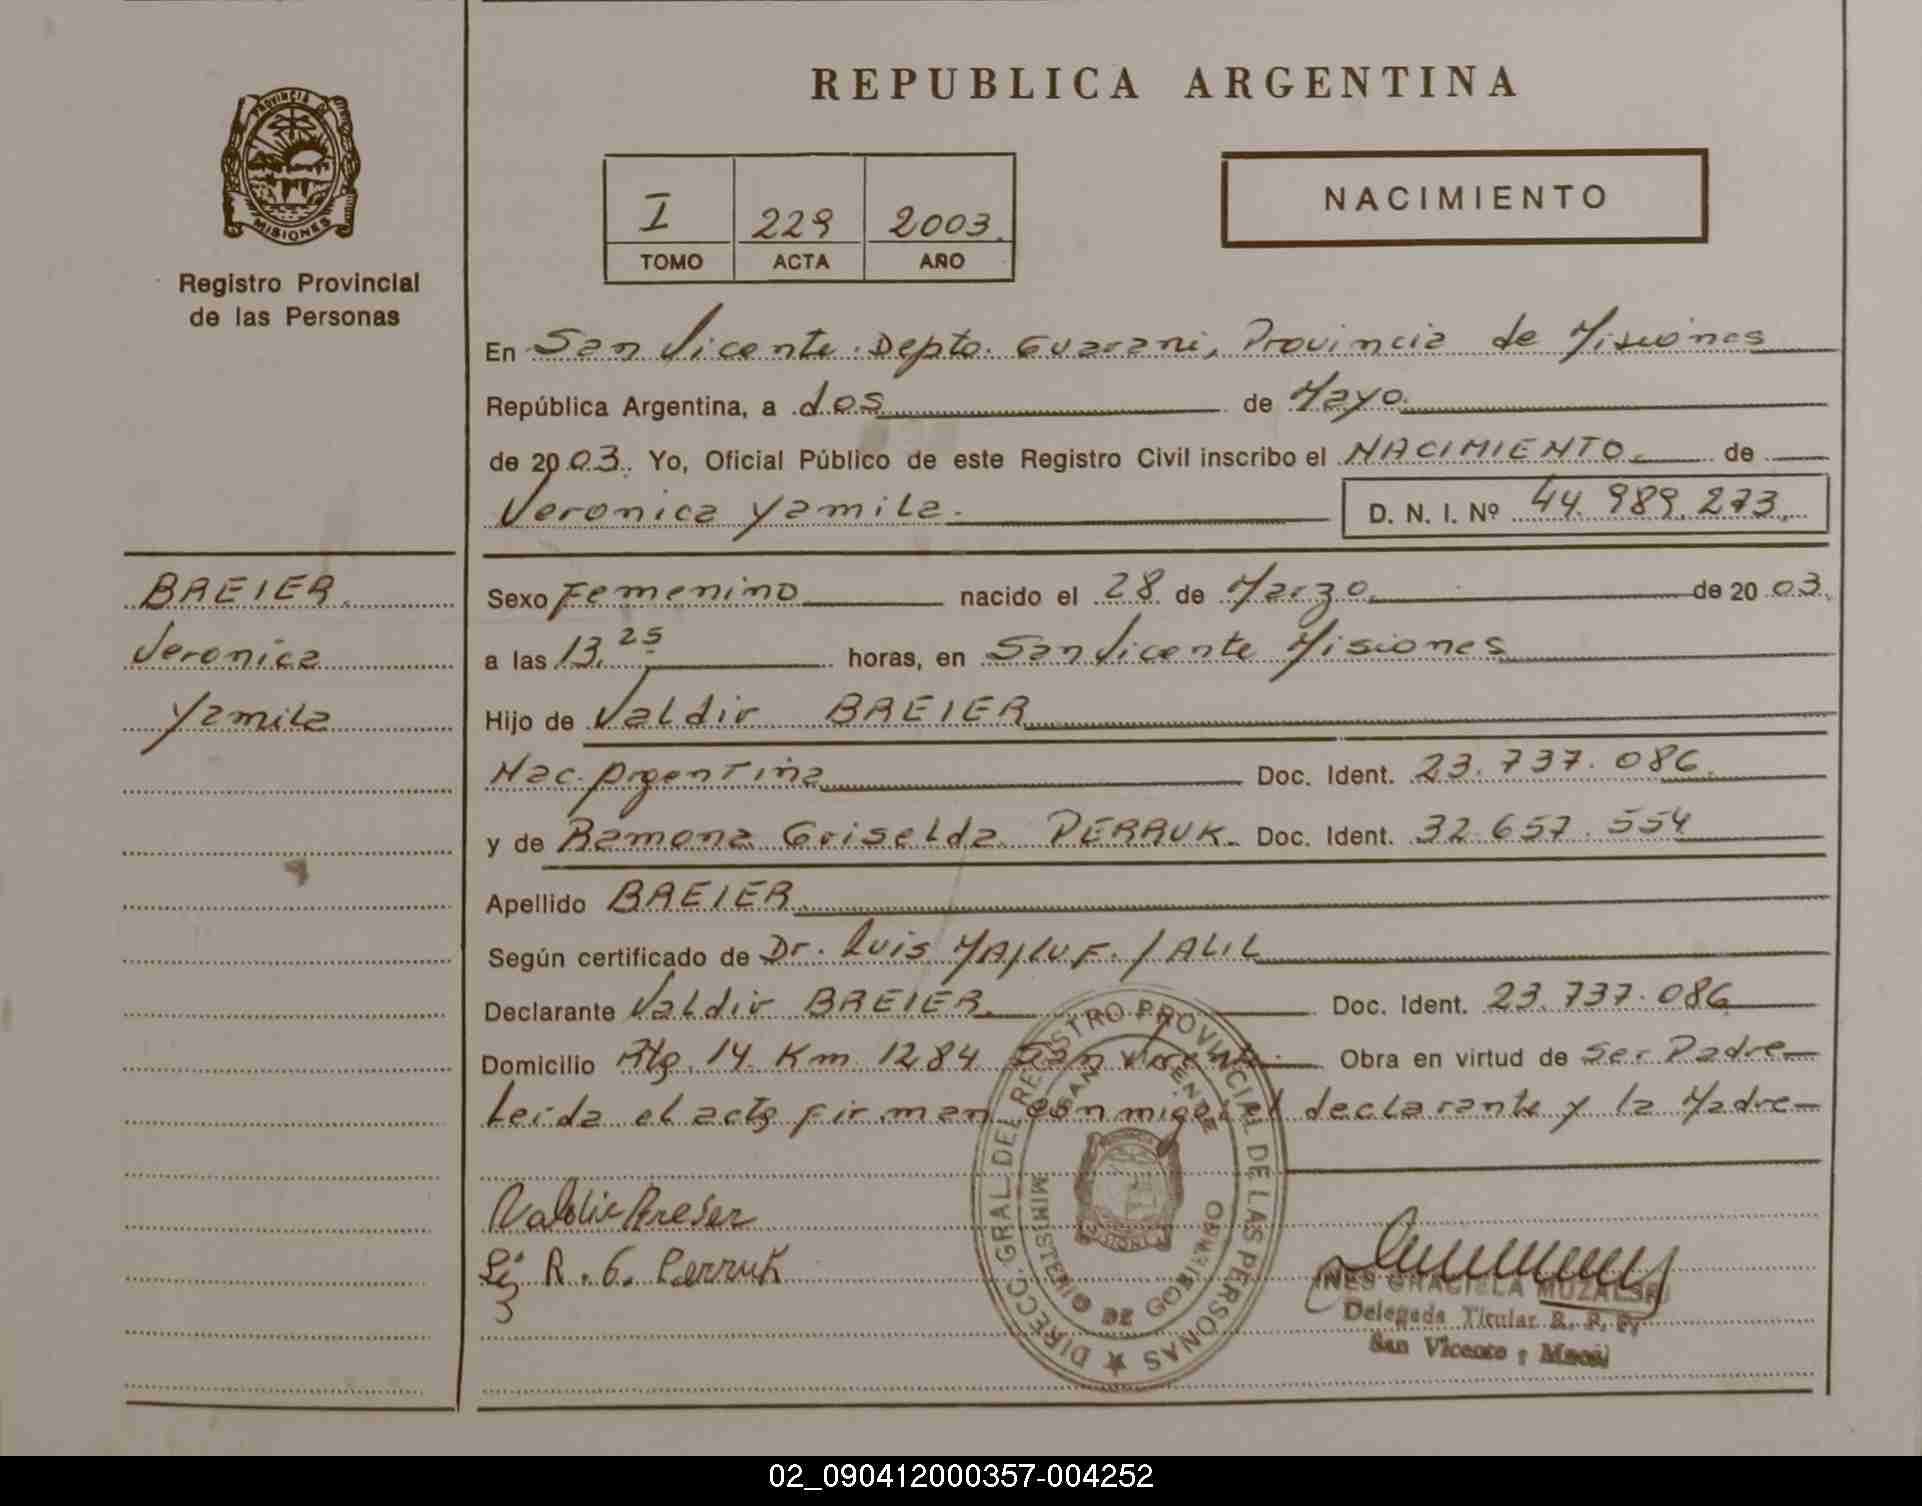 REPUBLICA ARGENTINA
PROVINCIA DE
MISIONES
Registro Provincial
de las Personas
I 229 2003.
TOMO ACTA AÑO
NACIMIENTO
En San Vicente. Depto. Guarani, Provincia de Misiones
República Argentina, a dos de Mayo.
de 2003. Yo, Oficial Público de este Registro Civil inscribo el NACIMIENTO de
Veronica Yamila. D. N. I. Nº 44.989.273.
BREIER.
Veronica
Yamila
Sexo Femenino nacido el 28 de Marzo de 2003.
a las 13.25 horas, en San Vicente Misiones
Hijo de Valdir BREIER
Nac. Argentina Doc. Ident. 23.737.086.
y de Ramona Griselda PERRUK. Doc. Ident. 32.657.554
Apellido BREIER.
Según certificado de Dr. Luis
Declarante Valdir BREIER. Doc. Ident. 23.737.086
Domicilio Rta. 14 Km 1284 San Vicente. Obra en virtud de Ser Padre
Leida el acta firman conmigo el declarante y la Madre
Valdir Breier
R. G. Perruk
DIRECC. GRAL. DEL REGISTRO PROVINCIAL DE LAS PERSONAS
SAN VICENTE
MINISTERIO DE GOBIERNO
MISIONES
INES GRACIELA
Delegada Titular R. P. P.
San Vicente
02_090412000357-004252